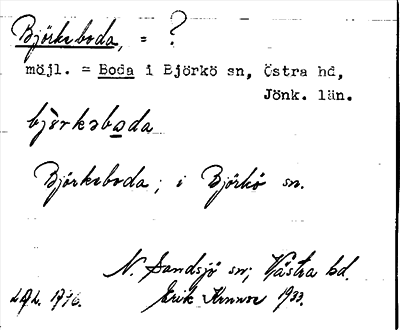 Björkaboda, = ?
möjl. = Boda i Björkö sn, Östra hd,
Jönk. län.
björkaboda
Björkaboda; i Björkö sn.
N. Sandsjö sn; Västra hd.
Erik 1933.